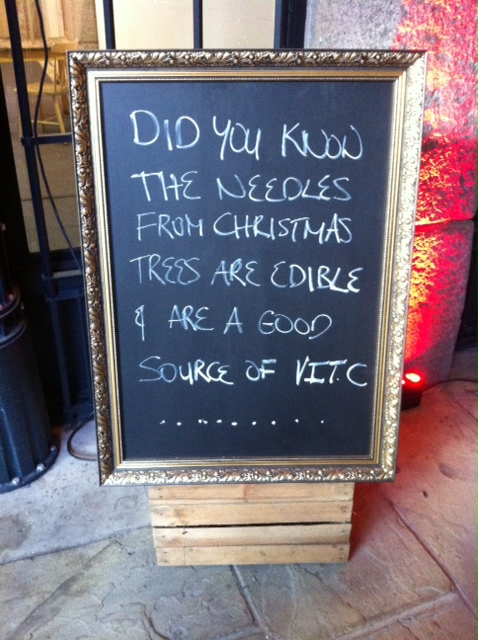 DID YOU KNOW
THE NEEDLES
FROM CHRISTMAS
TREES ARE EDIBLE
& ARE A GOOD
SOURCE OF VIT.C
..........